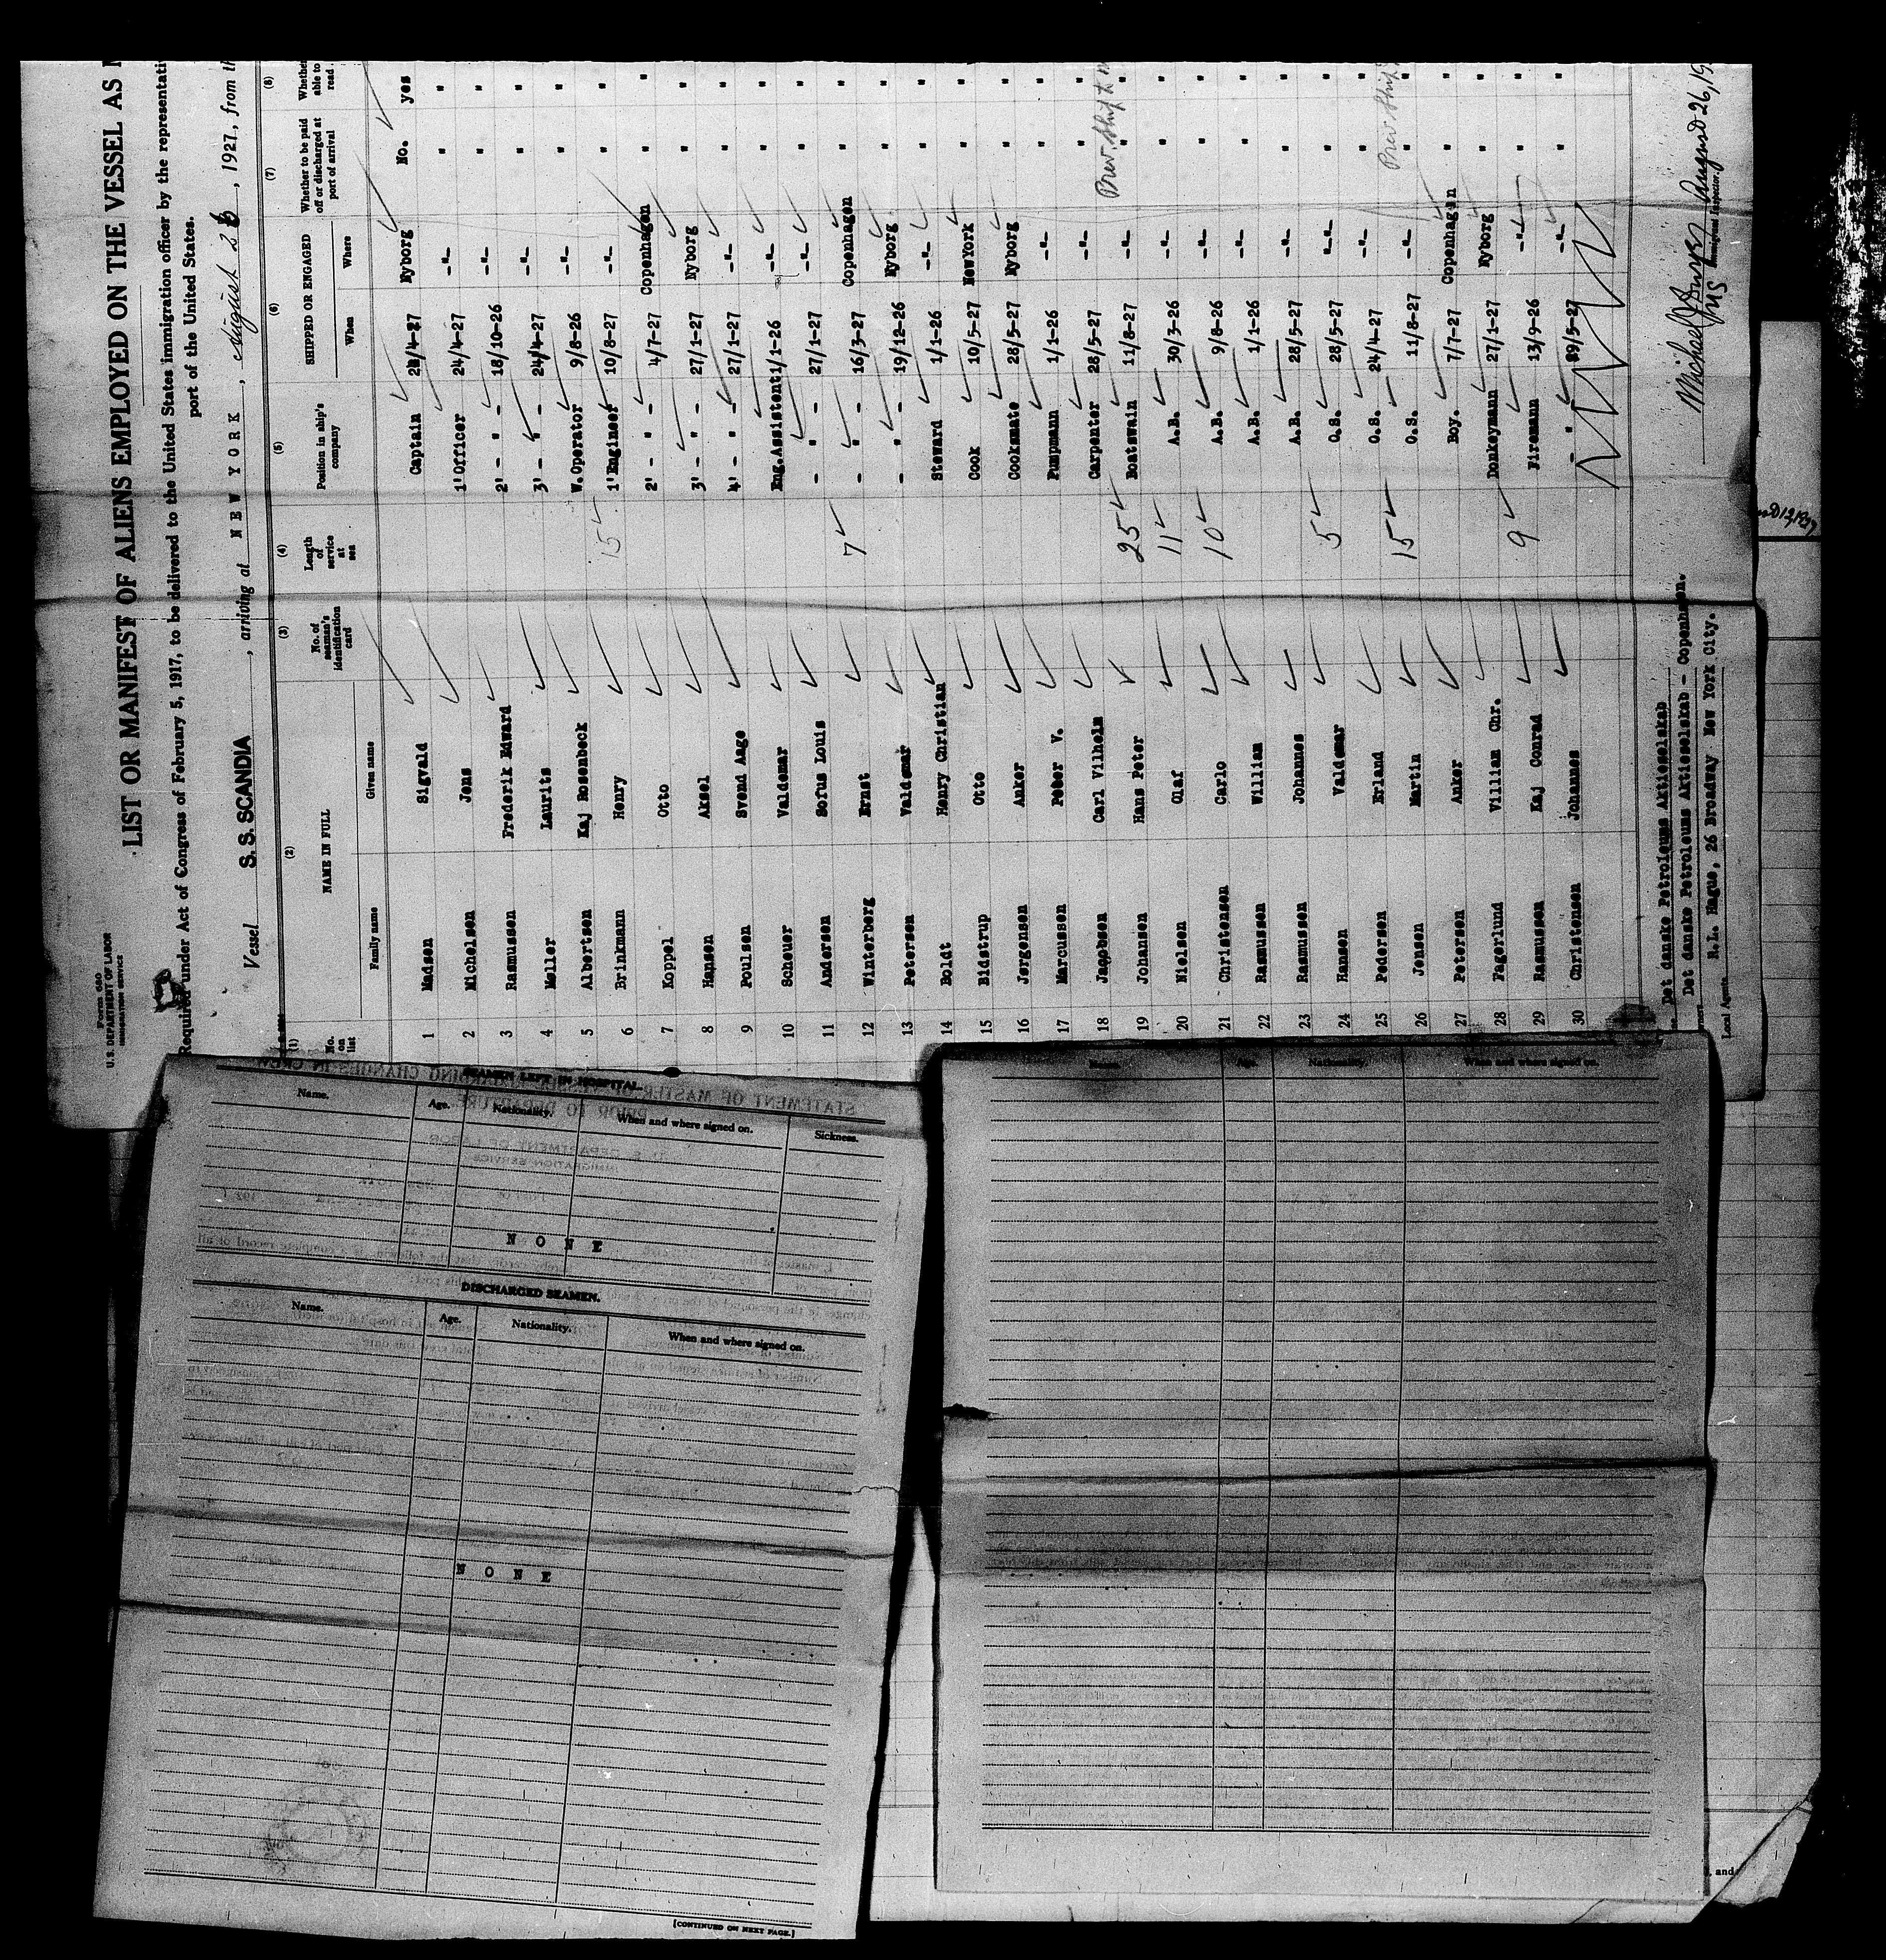 Form 680
U.S. DEPARTMENT OF LABOR
IMMIGRATION SERVICE
LIST OR MANIFEST OF ALIENS EMPLOYED ON THE VESSEL AS
Required under Act of Congress of February 5, 1917, to be delivered to the United States immigration officer by the representati
port of the United States.
Vessel S. S. SCANDIA, arriving at NEW YORK, August 26, 1927, from th
(1) (2) (3) (4) (5) (6) (7) (8)
No. on list NAME IN FULL Family name Given name No. of seaman's identification card Length of service at sea Position in ship's company SHIPPED OR ENGAGED When Where Whether to be paid off or discharged at port of arrival Whether able to read
1 Madsen Sigvald Captain 24/4-27 Nyborg No. yes
2 Michelsen Jens 1' Officer 24/4-27 -"- " "
3 Rasmussen Frederik Edward 2' - " - 18/10-26 -"- " "
4 Møller Laurits 3' - " - 24/4-27 -"- " "
5 Albertsen Kaj Rosenbeck W. Operator 9/8-26 -"- " "
6 Brinkmann Henry 15 1' Engineer 10/8-27 -"- " "
7 Koppel Otto 2' - " - 4/7-27 Copenhagen " "
8 Hansen Aksel 3' - " - 27/1-27 Nyborg " "
9 Poulsen Svend Aage 4' - " - 27/1-27 -"- " "
10 Scheuer Valdemar Eng.Assistent 1/1-26 -"- " "
11 Andersen Sofus Louis - " - 27/1-27 -"- " "
12 Winterberg Ernst 7 - " - 16/3-27 Copenhagen " "
13 Petersen Valdemar - " - 19/12-26 Nyborg " "
14 Boldt Henry Christian Steward 1/1-26 -"- " "
15 Bidstrup Otto Cook 10/5-27 NewYork " "
16 Jørgensen Anker Cooksmate 28/5-27 Nyborg " "
17 Marcussen Peder V. Pumpmann 1/1-26 -"- " "
18 Jacobsen Carl Vilhelm Carpenter 28/5-27 -"- " "
19 Johansen Hans Peter 25 Boatswain 11/8-27 -"- Prev. Ship " "
20 Nielsen Olaf 11 A.B. 30/3-26 -"- " "
21 Christensen Carlo 10 A.B. 9/8-26 -"- " "
22 Rasmussen William A.B. 1/1-26 -"- " "
23 Rasmussen Johannes A.B. 28/5-27 -"- " "
24 Hansen Valdemar 5 O.S. 28/5-27 -"- " "
25 Pedersen Erland O.S. 24/4-27 -"- " "
26 Jensen Martin 15 O.S. 11/8-27 -"- Prev Ship " "
27 Petersen Anker Boy. 7/7-27 Copenhagen " "
28 Fagerlund Villian Chr. Donkeymann 27/1-27 Nyborg " "
29 Rasmussen Kaj Conrad 9 Firemann 13/9-26 -"- " "
30 Christensen Johannes - " - 29/5-27 -"- " "
Det danske Petroleums Aktieselskab
Det danske Petroleums Aktieselskab - Copenhagen.
Local Agents R.L. Hague, 26 Broadway New York City.
Michael August 26, 19
Immigrant Inspector.
SEAMEN LEFT IN HOSPITAL.
Name. Age. Nationality. When and where signed on. Sickness.
N O N E
DISCHARGED SEAMEN.
Name. Age. Nationality. When and where signed on.
N O N E
[CONTINUED ON NEXT PAGE.]
Name. Age. Nationality. When and where signed on.
, and